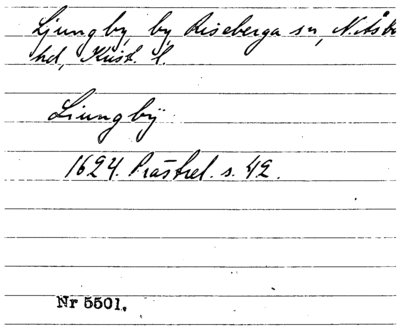 Ljungby, by Riseberga sn, N. Åsbo
hd, Krist. l.
Liungbÿ
1624. Prästrel. s. 42.
Nr 5501.